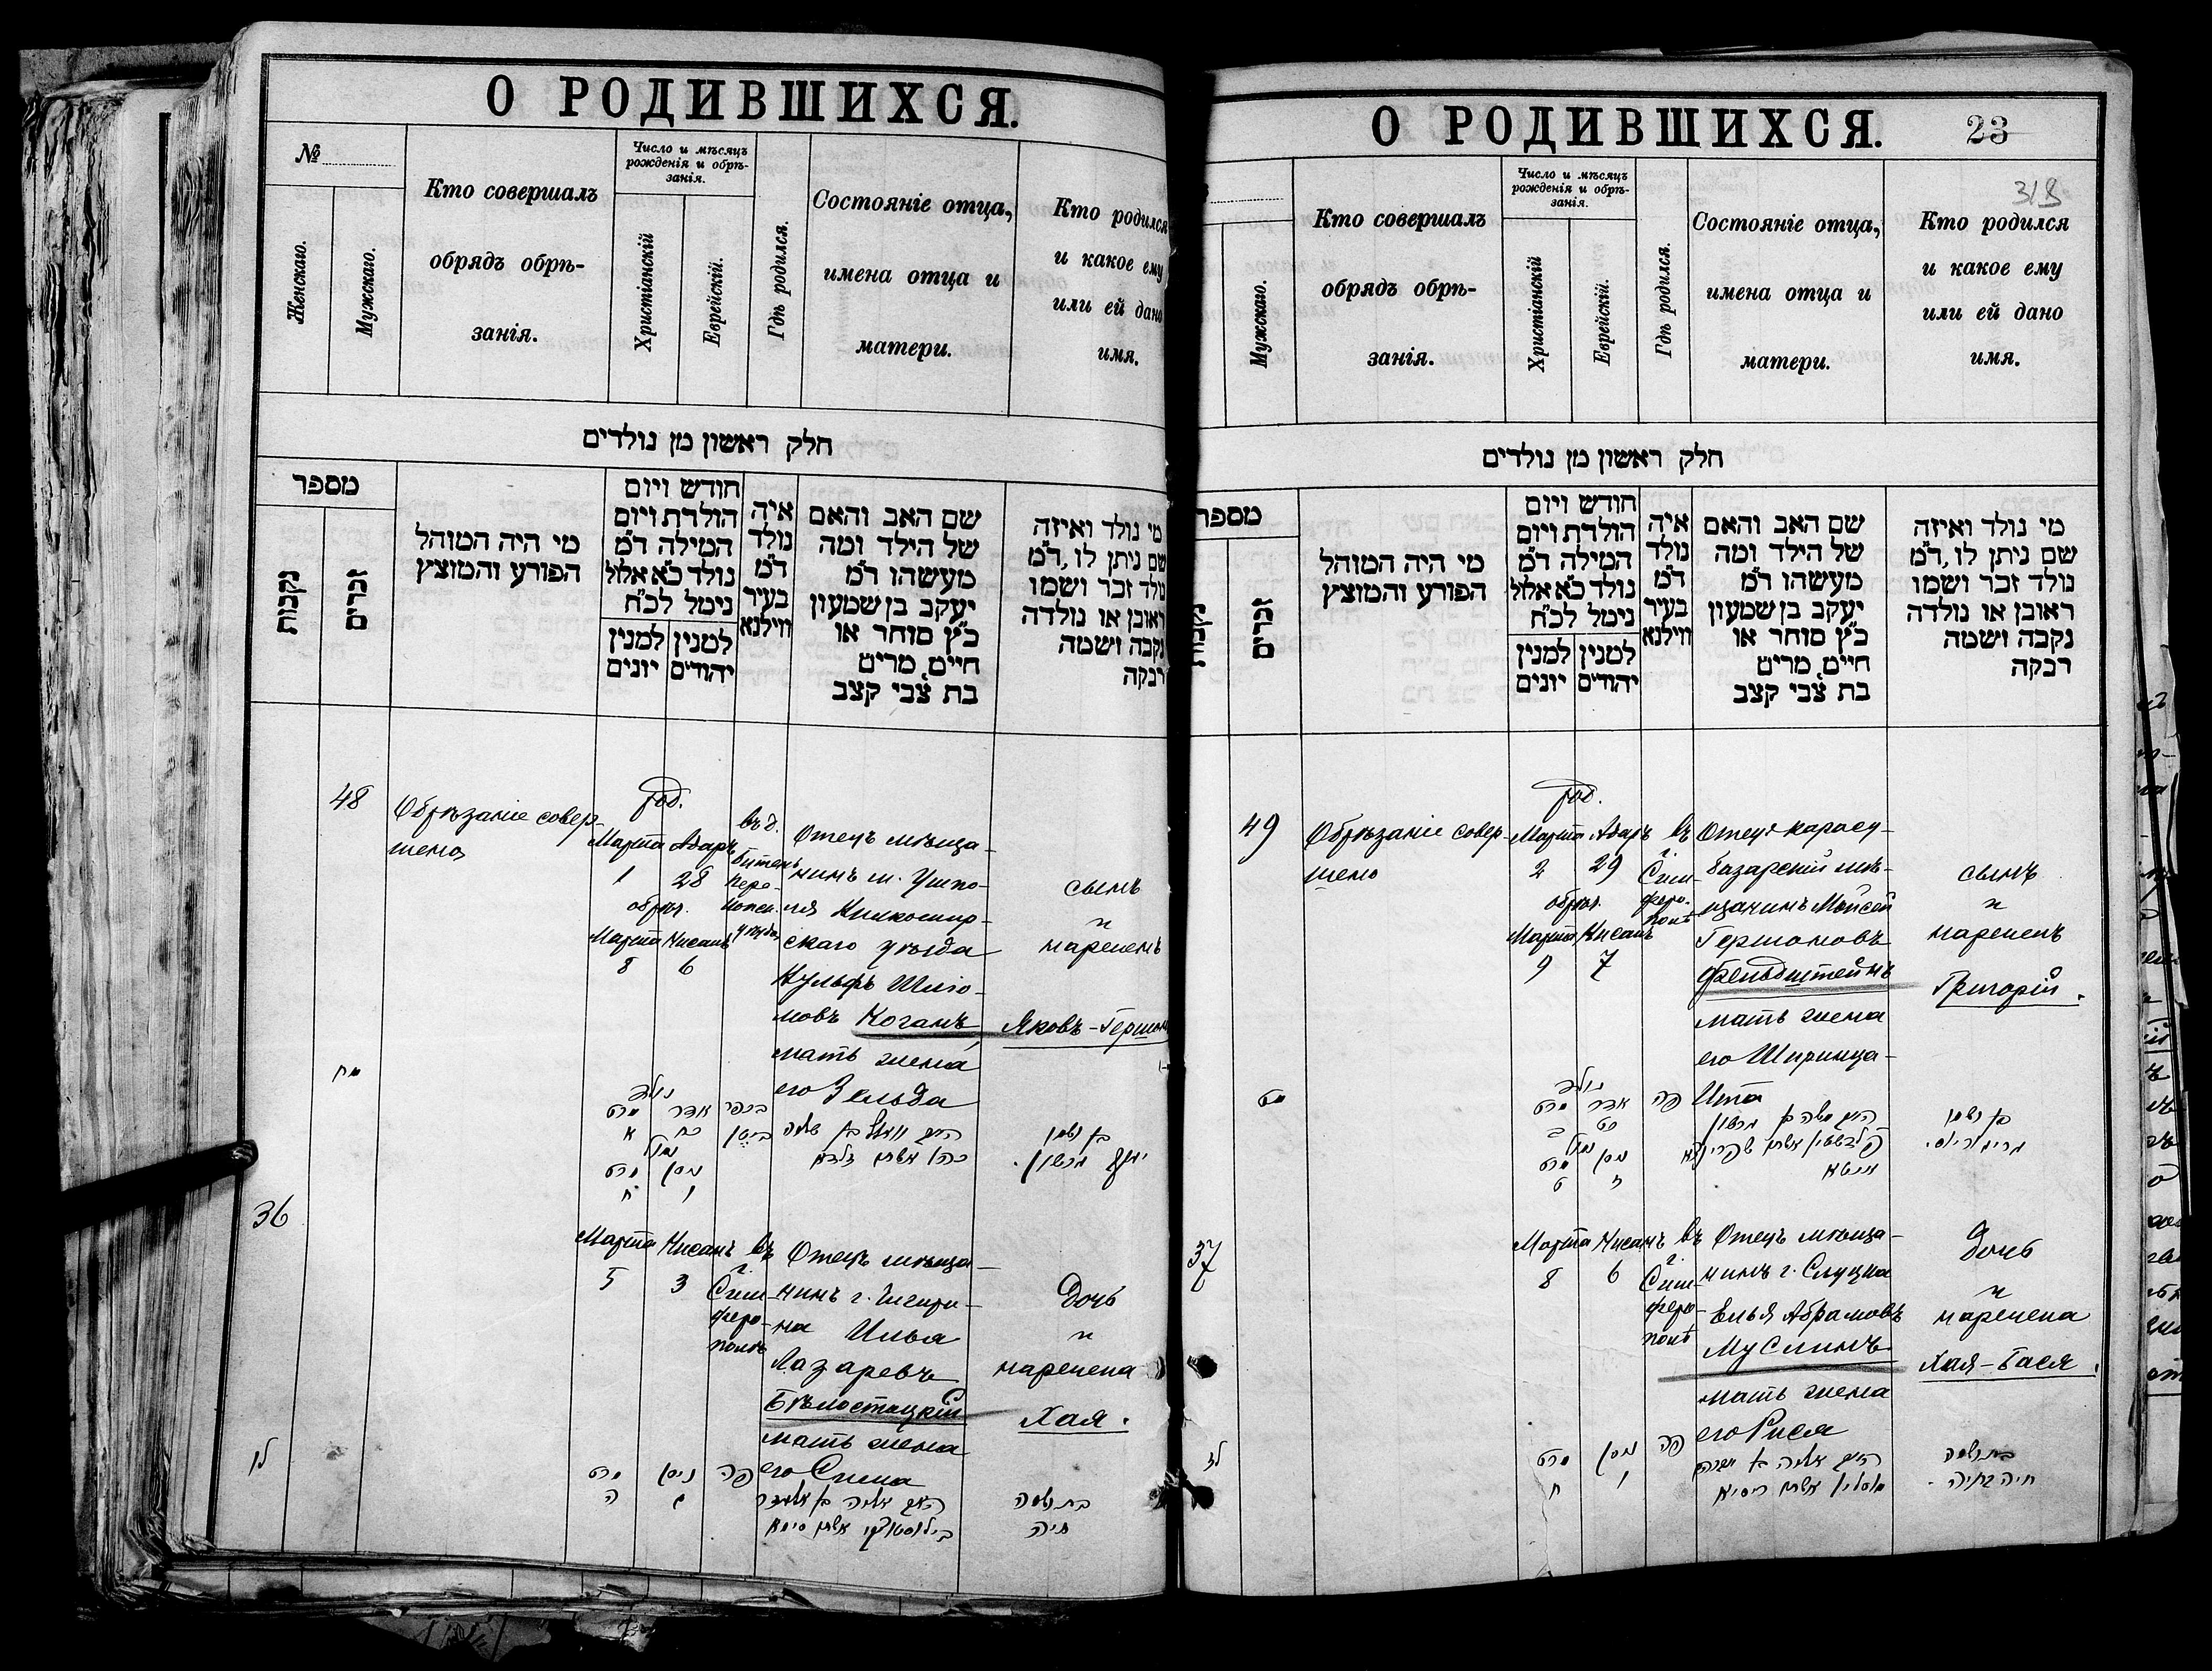 О РОДИВШИХСЯ.
№
Женскаго.
Мужскаго.
Кто совершалъ
обрядъ обрѣ-
занія.
Число и мѣсяцъ
рожденія и обрѣ-
занія.
Христіанскій
Еврейскій.
Гдѣ родился.
Состояніе отца,
имена отца и
матери.
Кто родился
и какое ему
или ей дано
имя.
חלק ראשון מן נולדים
מספר
נקבות
זכרים
מי היה המוהל
הפורע והמוצץ
חודש ויום
הולדת ויום
המילה ד״מ
נולד כ״א אלול
נימל לכ״ח
למנין יונים
למנין יהודים
איה
נולד
ד״מ
בעיר
ווילנא
שם האב והאם
של הילד ומה
מעשהו ד״מ
יעקב בן שמעון
כ״ץ סוחר או
חיים, מרים
בת צבי קצב
מי נולד ואיזה
שם ניתן לו, ד״מ
נולד זכר ושמו
ראובן או נולדה
נקבה ושמה
רבקה
48
Обрѣзаніе совер-
шено
род.
Марта Адаръ
1 28
обрѣз.
Марта Нисанъ
8 6
въ д.
Отецъ мѣща-
нинъ м. Ушпо-
ля Вилкомир-
скаго уѣзда
Вульфъ Шліо-
мовъ Коганъ
мать жена
его Зельда
сынъ
и
нареченъ
Яковъ-Гершон
מח
נולד
מרט אדר
א כח
נימול
מרט ניסן
ח ו
בן זכר
יעקב גרשון.
36
Марта Нисанъ
5 3
въ
г.
Сим-
феро-
полѣ
Отецъ мѣща-
нинъ г. Чигири-
на Илья
Лазаревъ
Бѣлостоцкій
мать жена
его Сима
Дочь
и
наречена
Хая.
לו
מרט ניסן פה
ה ג
חיה
О РОДИВШИХСЯ. 23
318
Мужскаго.
Кто совершалъ
обрядъ обрѣ-
занія.
Число и мѣсяцъ
рожденія и обрѣ-
занія.
Христіанскій
Еврейскій.
Гдѣ родился.
Состояніе отца,
имена отца и
матери.
Кто родился
и какое ему
или ей дано
имя.
חלק ראשון מן נולדים
מספר
נקבות
זכרים
מי היה המוהל
הפורע והמוצץ
חודש ויום
הולדת ויום
המילה ד״מ
נולד כ״א אלול
נימל לכ״ח
למנין יונים
למנין יהודים
איה
נולד
ד״מ
בעיר
ווילנא
שם האב והאם
של הילד ומה
מעשהו ד״מ
יעקב בן שמעון
כ״ץ סוחר או
חיים, מרים
בת צבי קצב
מי נולד ואיזה
שם ניתן לו, ד״מ
נולד זכר ושמו
ראובן או נולדה
נקבה ושמה
רבקה
49
Обрѣзаніе совер-
шено
род.
Марта Адаръ
2 29
обрѣз.
Марта Нисанъ
9 7
въ
г.
Сим-
феро-
полѣ
Отецъ карасу-
базарскій мѣ-
щанинъ Мойсей
Гершоновъ
Фельдштейнъ
мать жена
его Шпринца-
Ита
сынъ
и
нареченъ
Григорій.
מט
נולד
מרט אדר פה
ב כט
נימול
מרט ניסן
ט ז
37
Марта Нисанъ
8 6
въ
г.
Сим-
феро-
полѣ
Отецъ мѣща-
нинъ г. Слуцка
Элья Абрамовъ
Муслинъ
мать жена
его Рися
Дочь
и
наречена
Хая-Бася.
לז
מרט ניסן פה
ח ו